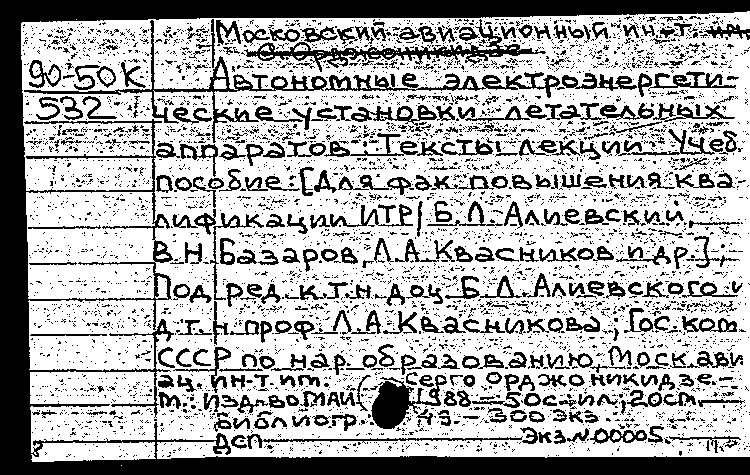 Московский авиационный ин-т. им.
С. Орджоникидзе
90-50К Автономные электроэнергети-
532 ческие установки летательных
аппаратов: Тексты лекции: Учеб
пособие: [Для фак. повышения ква-
лификации ИТР / Б. Л. Алиевский,
В. Н. Базаров, Л. А. Квасников и др.];
Под ред. к.т.н. доц. Б. Л. Алиевского и
д.т.н. проф. Л. А. Квасникова; Гос. ком.
СССР по нар. образованию, Моск. ави
ац. ин-т. им. Серго Орджоникидзе. -
М.: Изд-во МАИ, 1988. - 50с.: ил.; 20см. -
Библиогр. 49. - 300 экз.
ДСП. Экз. N 00005.